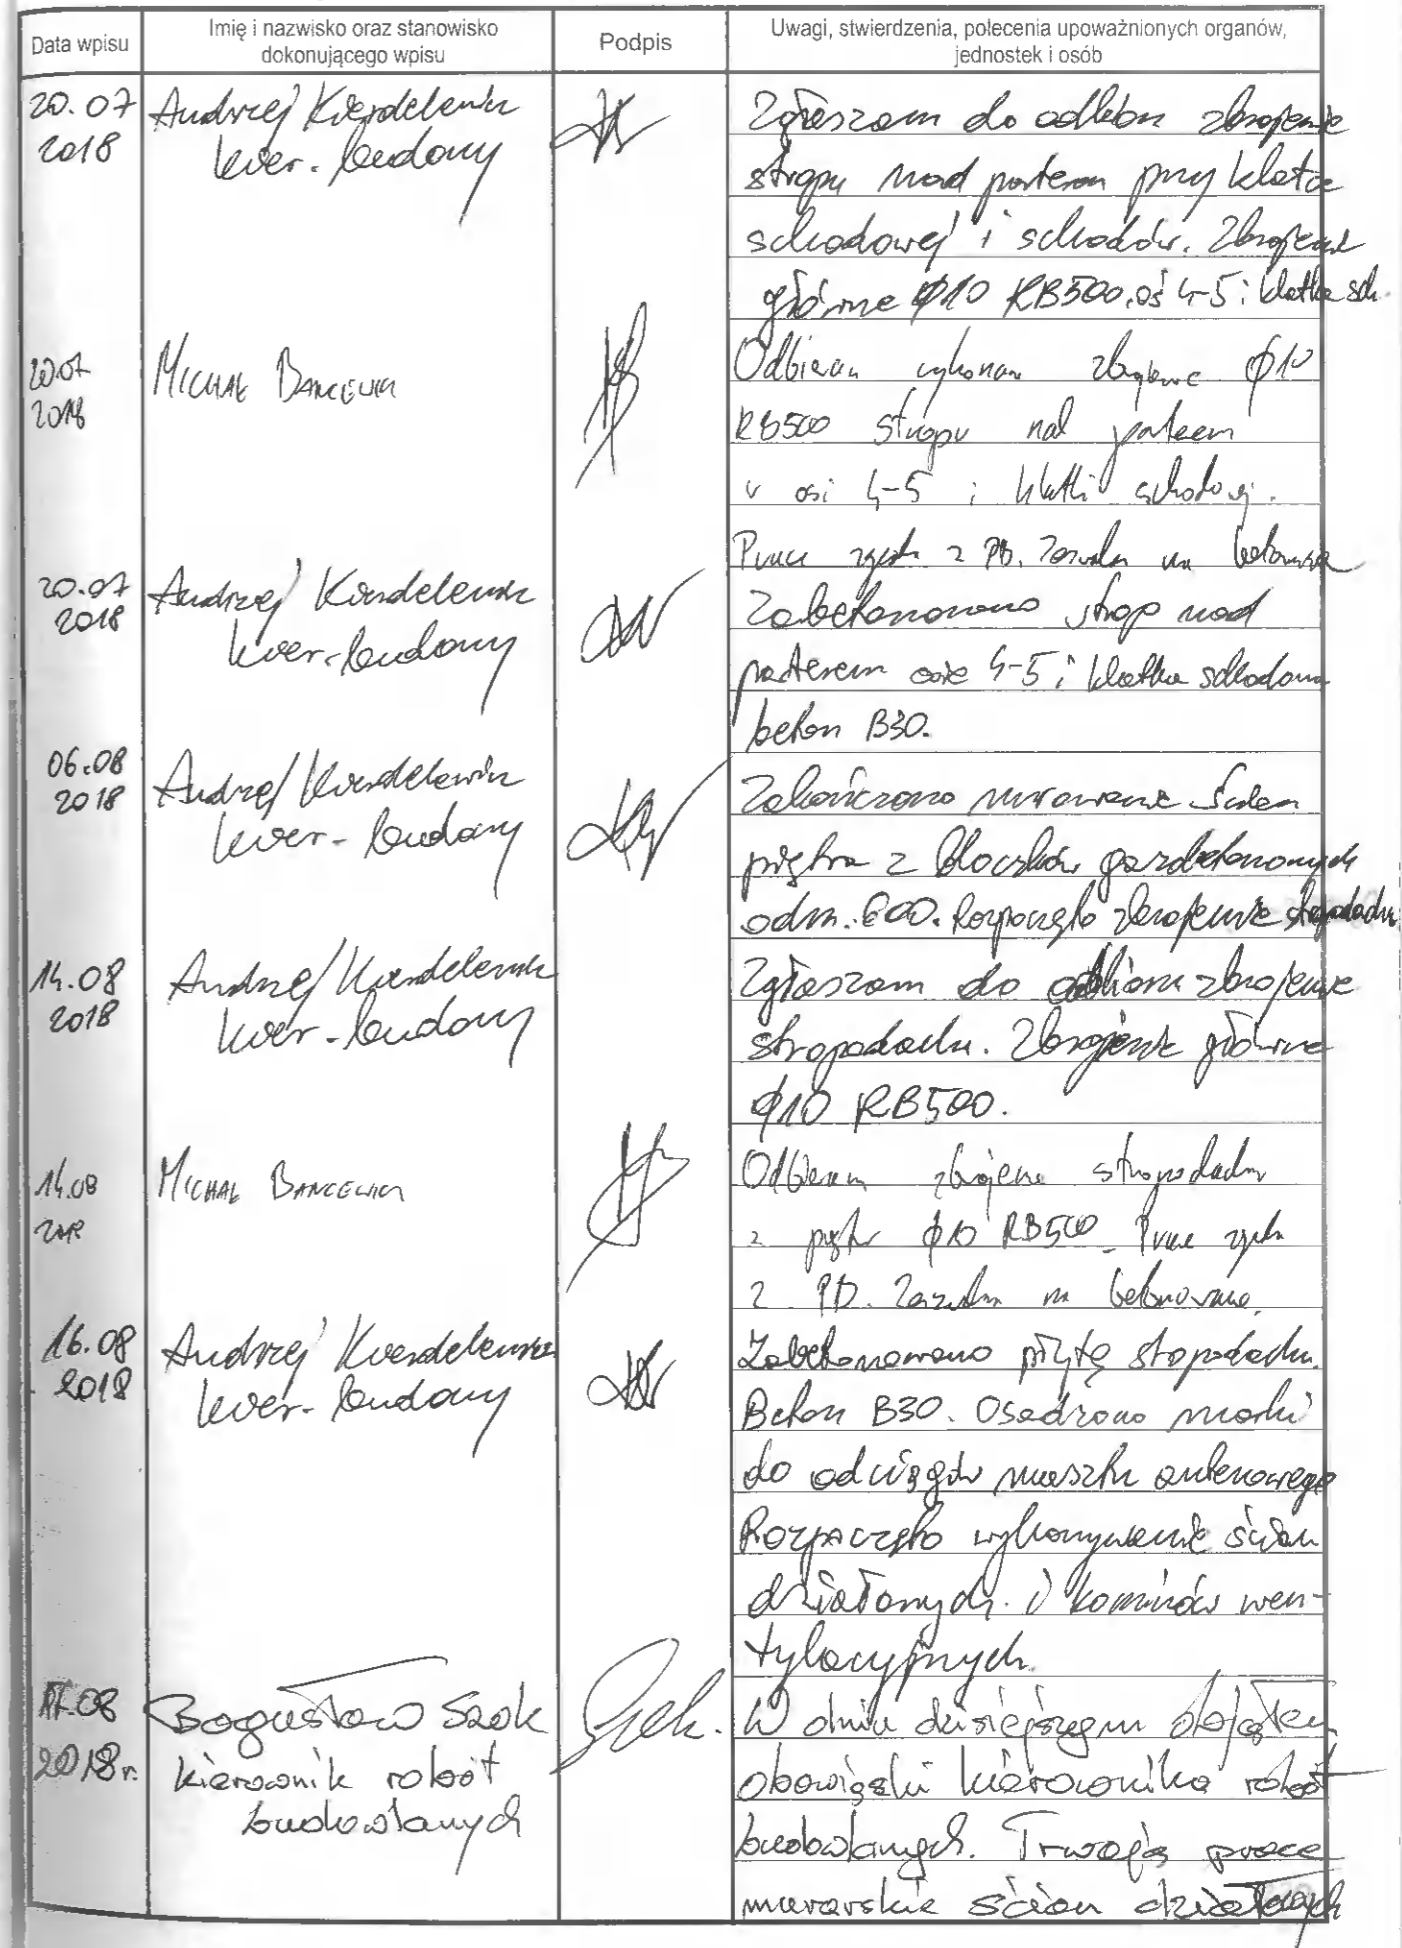 Data wpisu
Imię i nazwisko oraz stanowisko
dokonującego wpisu
Podpis
Uwagi, stwierdzenia, polecenia upoważnionych organów,
jednostek i osób
20.07
2018
Andrzej
kier. budowy
Zgłaszam do odbioru zbrojenie
stropu nad parterem przy klatce
schodowej i schodów. Zbrojenie
główne φ10 RB500, oś 4-5 i klatka sch.
20.07
2018
MICHAŁ BANCEWICZ
Odbieram wykonane zbrojenie φ10
RB500 stropu nad parterem
w osi 4-5 i klatki schodowej.
Prace zgodne z PB. Zezwalam na betonowanie
20.07
2018
Andrzej
kier. budowy
Zabetonowano strop nad
parterem osie 4-5 i klatka schodowa
beton B30.
06.08
2018
Andrzej
kier. budowy
Zakończono murowanie ścian
piętra z bloczków gazobetonowych
odm. 600. Rozpoczęto zbrojenie stropodachu
14.08
2018
Andrzej
kier. budowy
Zgłaszam do odbioru zbrojenie
stropodachu. Zbrojenie główne
φ10 RB500.
14.08
2018
MICHAŁ BANCEWICZ
Odbieram zbrojenie stropodachu
z φ10 RB500. Prace zgodne
z PB. Zezwalam na betonowanie.
16.08
2018
Andrzej
kier. budowy
Zabetonowano płytę stropodachu.
Beton B30. Osadzono marki
do odciągów masztu antenowego
Rozpoczęto wykonywanie ścian
działowych i kominów wen-
tylacyjnych.
17.08
2018r.
Bogusław Szok
kierownik robót
budowlanych
W dniu dzisiejszym objąłem
obowiązki kierownika robót
budowlanych. Trwają prace
murarskie ścian działowych